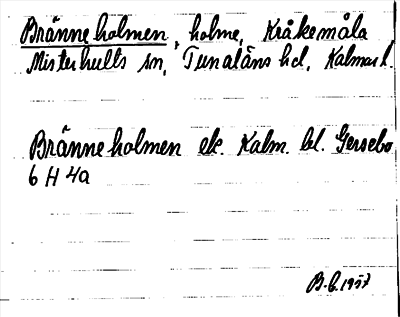 Bränneholmen, holme, Kråkemåla
Misterhults sn, Tunaläns hd, Kalmar l.
Bränneholmen ek. Kalm. bl. Gersebo
6 H 4a
B.G. 1957